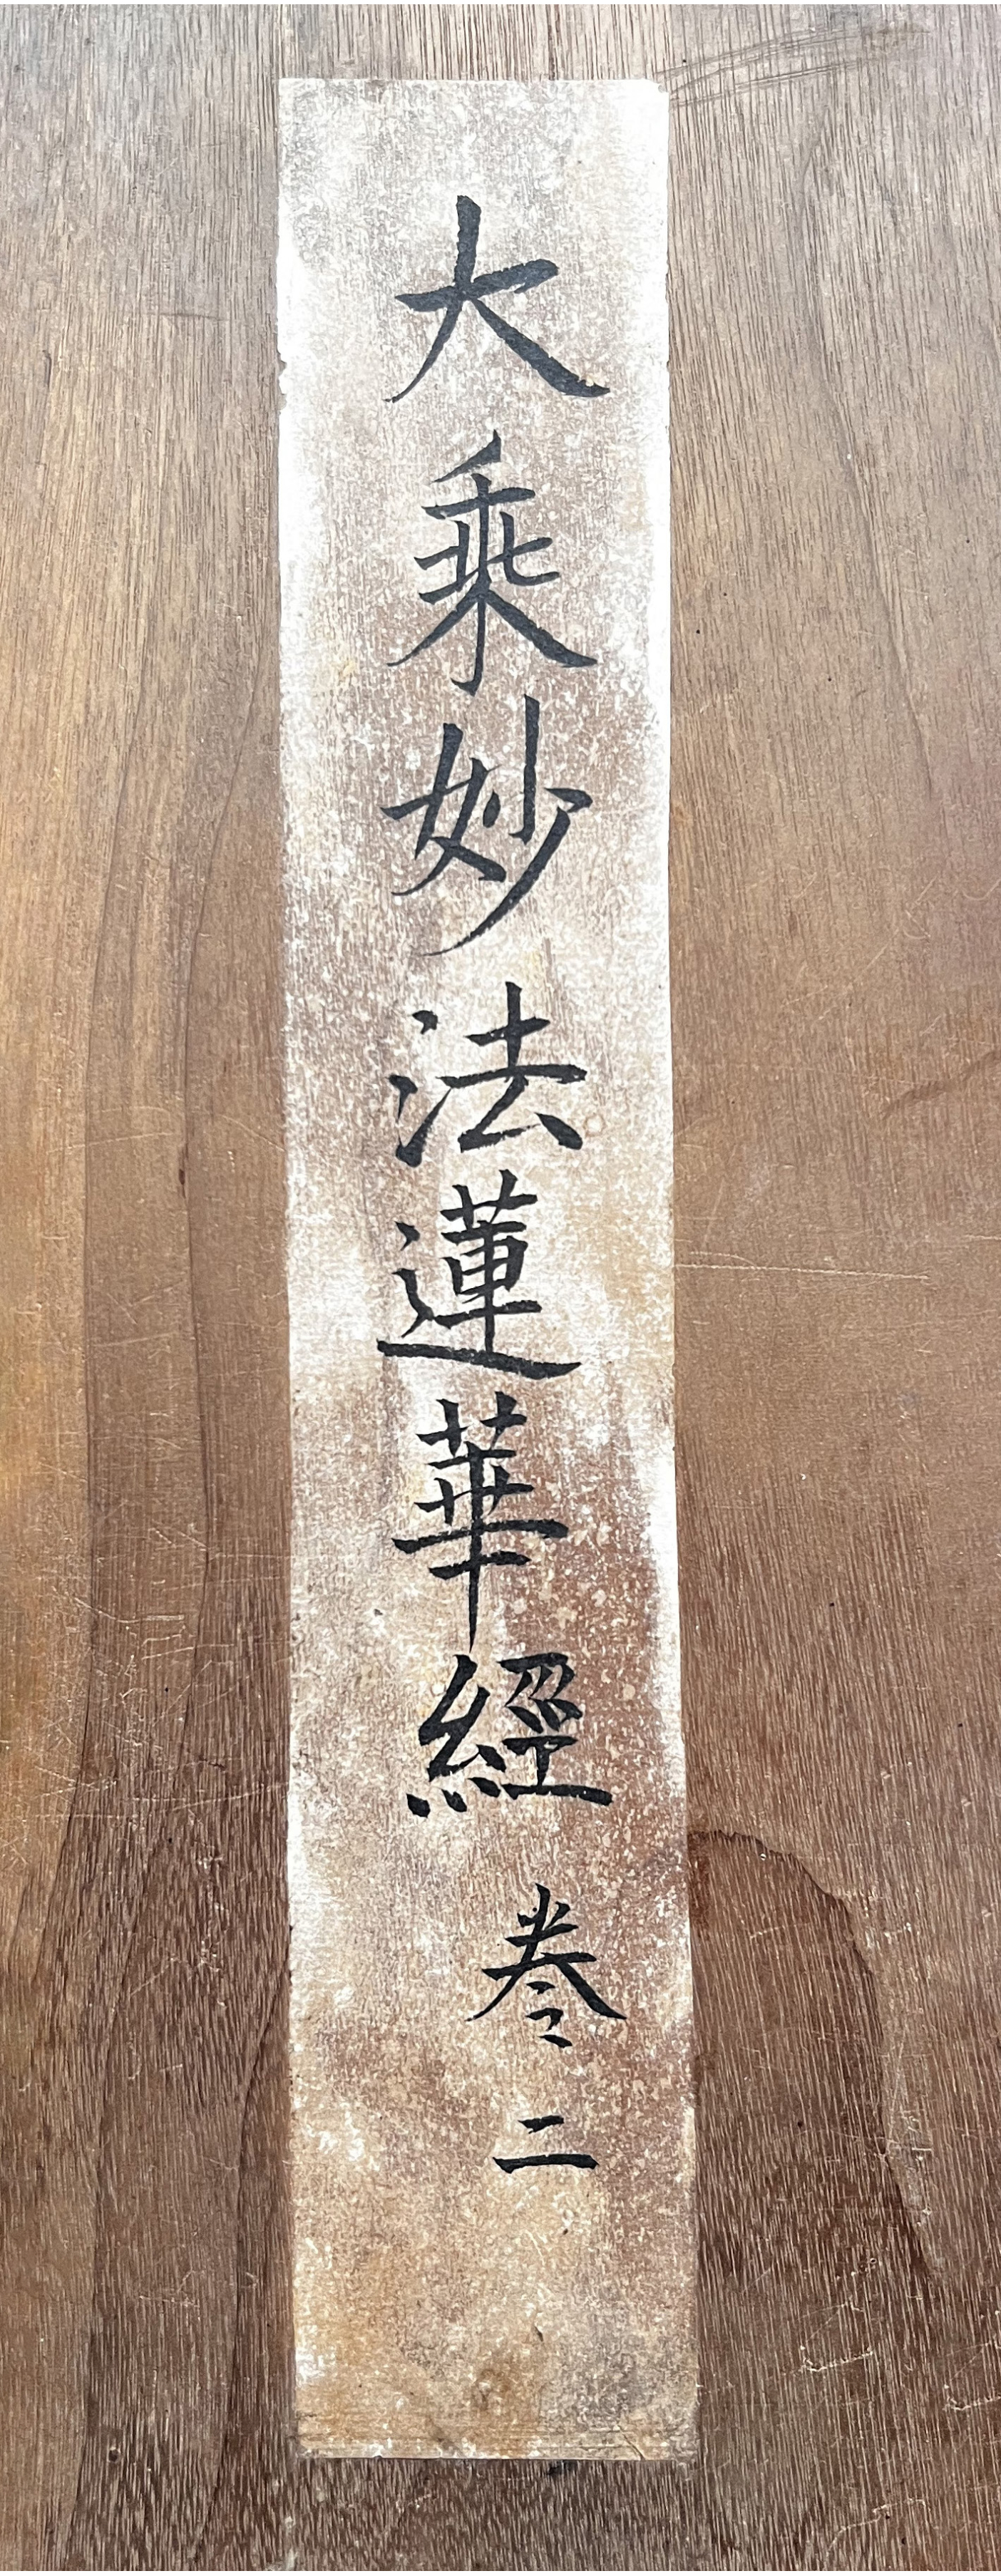 大乘妙法蓮華經卷二